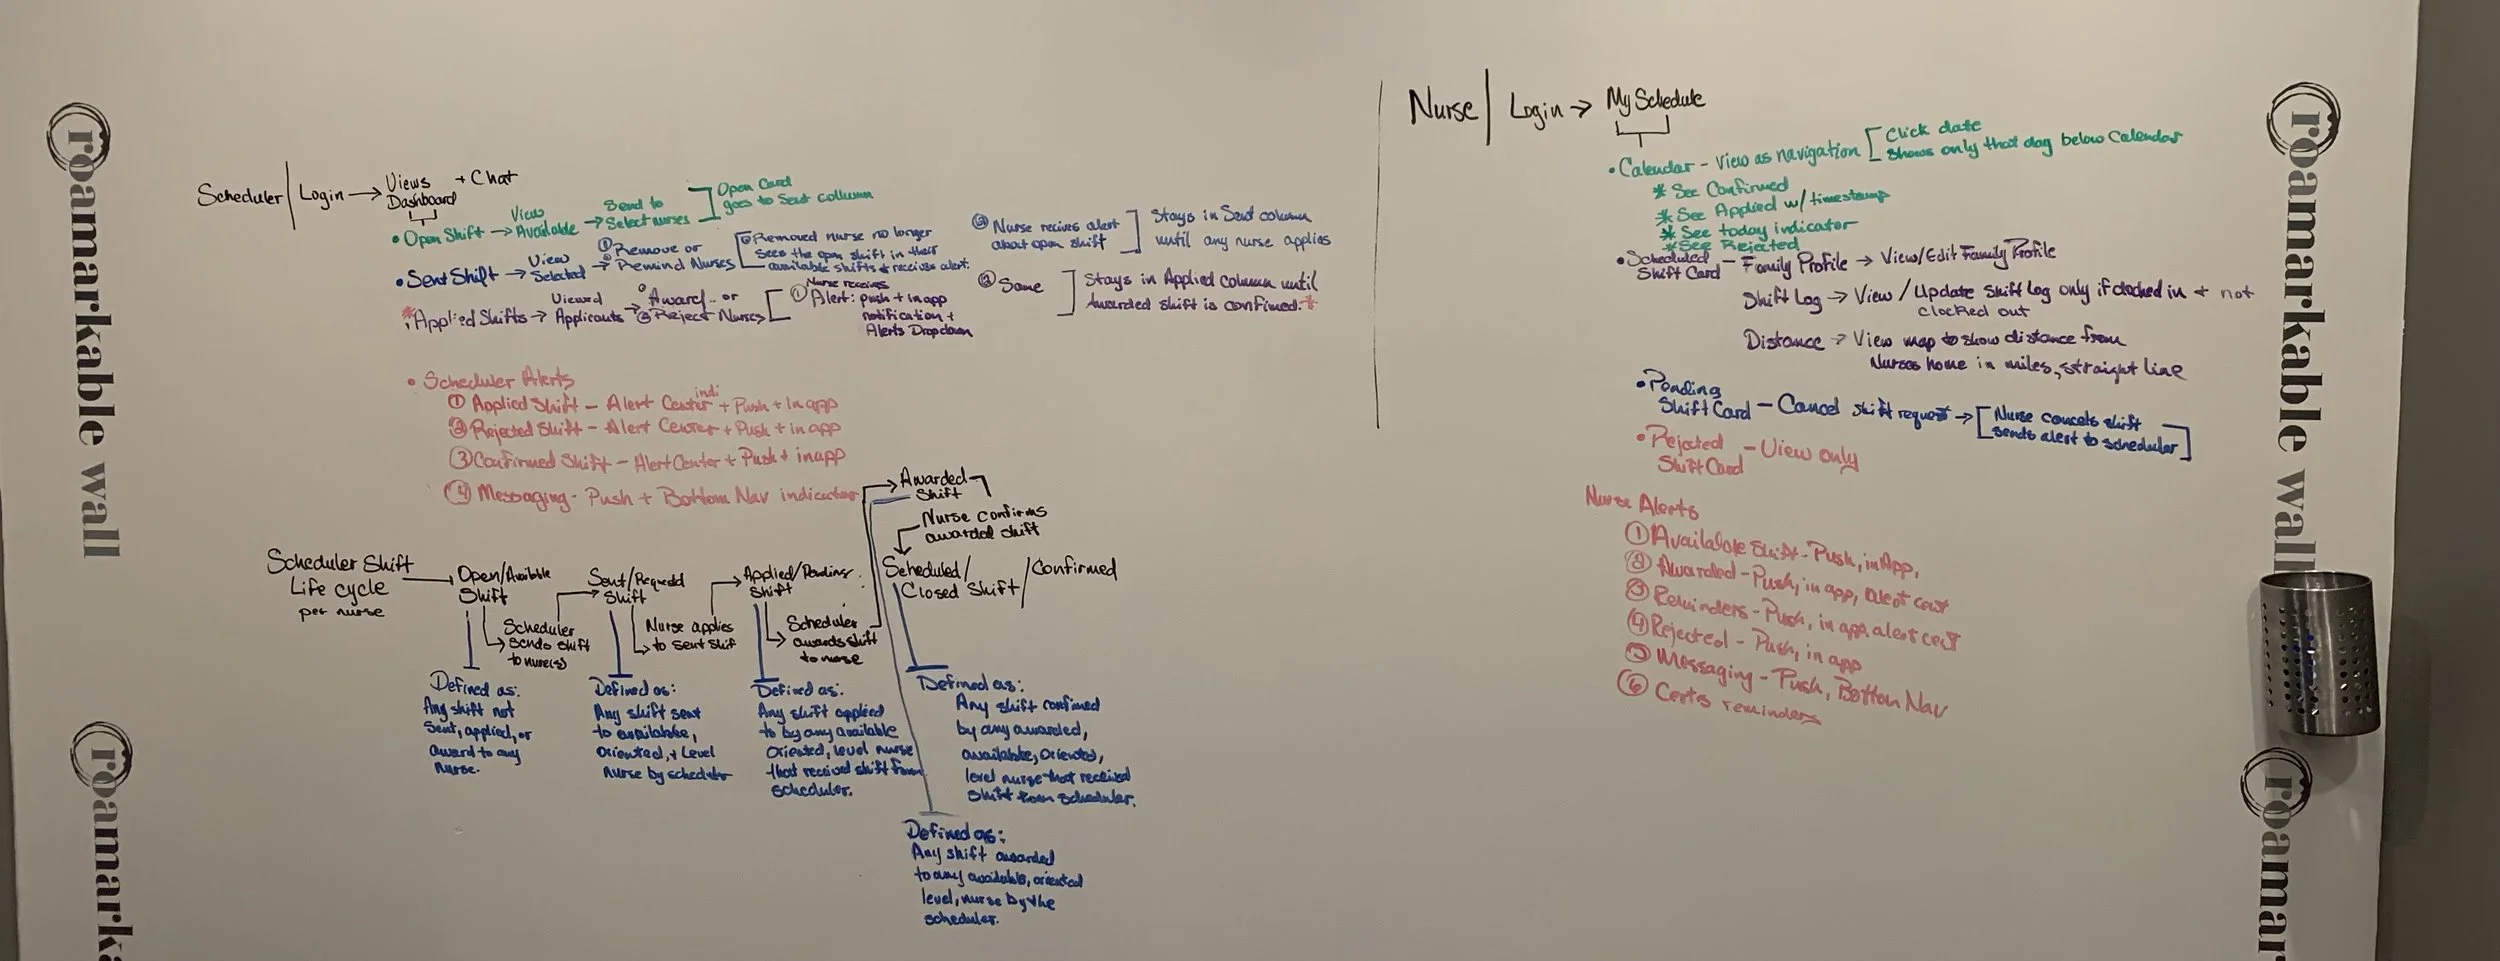 roamarkable wall
roamarka
Scheduler | Login → Views Dashboard + Chat
• Open Shift → View Available → Send to Select nurses
Open Card
goes to Sent collumn
• Sent Shift → View Selected → ① Remove or ② Remind Nurses
① Removed nurse no longer
sees the open shift in their
available shifts & receives alert.
② Nurse recives alert
about open shift
Stays in Sent column
until any nurse applies
* Applied Shifts → Viewed Applicants → ① Award or ② Reject Nurses
① Nurse receives
Alert: push + in app
notification +
Alerts Dropdown
② Same
Stays in Applied column until
Awarded shift is confimed. *
• Scheduler Alerts
① Applied Shift - Alert Center indi + Push + In app
② Rejected Shift - Alert Center + Push + in app
③ Confirmed Shift - Alert Center + Push + inapp
④ Messaging - Push + Bottom Nav indicator
Scheduler Shift
Life cycle
per nurse
Open/Available
Shift
Scheduler
sends shift
to nurse(s)
Sent/Requested
Shift
Nurse applies
to sent shif
Applied/Pending
Shift
Scheduler
awards shift
to nurse
Awarded
Shift
Nurse confirms
awarded shift
Scheduled/
Closed Shift / Confirmed
Defined as:
Any shift not
sent, applied, or
award to any
nurse.
Defined as:
Any shift sent
to available,
oriented, + level
nurse by scheduler
Defined as:
Any shift applied
to by any available
oriented, level nurse
that received shift from
scheduler.
Defined as:
Any shift confimed
by any awarded,
available, oriented,
level nurse that received
shift from scheduler.
Defined as:
Any shift awarded
to any available, oriented
level, nurse by the
scheduler.
Nurse | Login → My Schedule
• Calendar - View as navigation
Click date
shows only that day below Calendar
* See Confirmed
* See Applied w/ timestamp
* See today indicator
* See Rejected
• Scheduled Shift Card - Family Profile → View/Edit Family Profile
Shift Log → View / Update Shift Log only if clocked in + not
clocked out
Distance → View map to show distance from
Nurses home in miles, straight line
• Pending
Shift Card - Cancel shift request →
Nurse cancels shift
sends alert to scheduler
• Rejected
Shift Card - View only
Nurse Alerts
① Available Shift - Push, in App,
② Awarded - Push, in app, alert cent
③ Reminders - Push, in app, alert cent
④ Rejected - Push, in app
⑤ Messaging - Push, Bottom Nav
⑥ Certs reminders
roamarkable wall
roamar